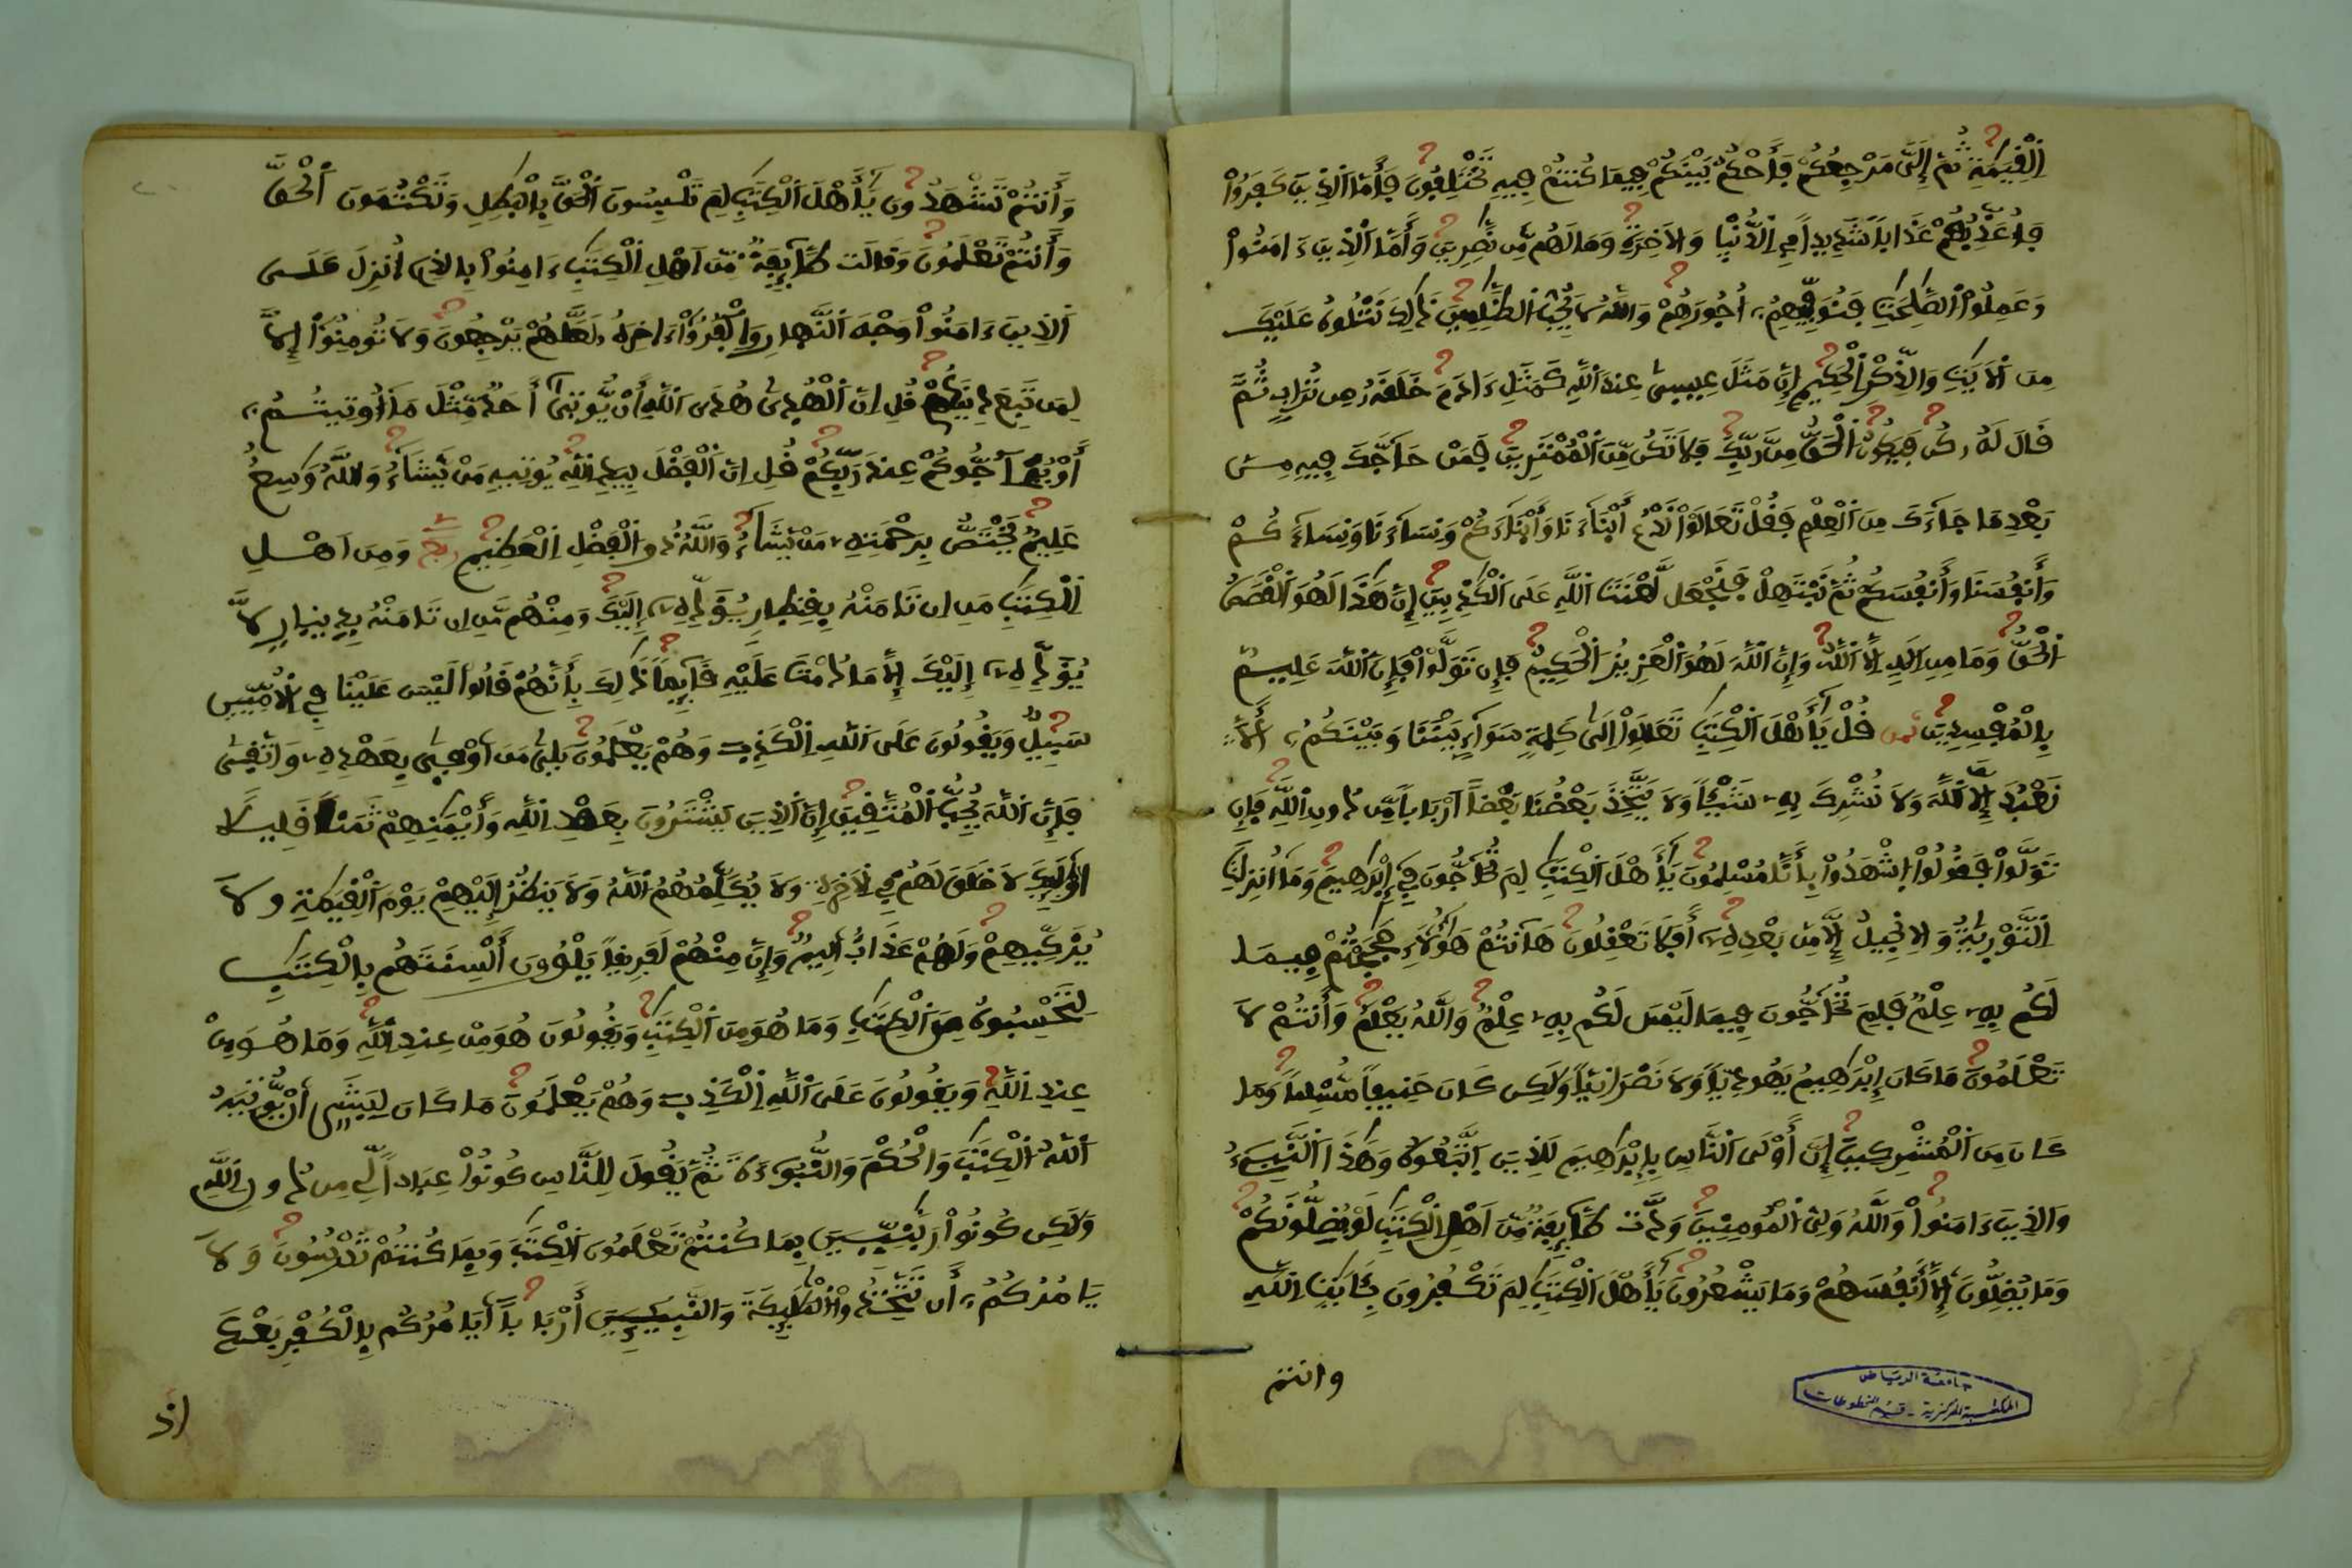 اَ۬لْقِيَٰمَةِ ثُمَّ إِلَيَّ مَرْجِعُكُمْ فَأَحْكُمُ بَيْنَكُمْ فِيمَا كُنتُمْ فِيهِ تَخْتَلِفُونَ فَأَمَّا اَ۬لذِينَ كَفَرُواْ
فَأُعَذِّبُهُمْ عَذَاباٗ شَدِيداٗ فِے اِ۬لدُّنْيَا وَالَاخِرَةِ وَمَا لَهُم مِّن نَّٰصِرِينَ وَأَمَّا اَ۬لذِينَ ءَامَنُواْ
وَعَمِلُواْ اُ۬لصَّٰلِحَٰتِ فَنُوَفِّيهِمُۥٓ أُجُورَهُمْ وَاللَّهُ لَا يُحِبُّ اُ۬لظَّٰلِمِينَ ذَٰلِكَ نَتْلُوهُ عَلَيْكَ
مِنَ اَ۬لَايَٰتِ وَالذِّكْرِ اِ۬لْحَكِيمِ إِنَّ مَثَلَ عِيسَىٰ عِندَ اَ۬للَّهِ كَمَثَلِ ءَادَمَ خَلَقَهُۥ مِن تُرَابٖ ثُمَّ
قَالَ لَهُۥ كُن فَيَكُونُ اُ۬لْحَقُّ مِن رَّبِّكَ فَلَا تَكُن مِّنَ اَ۬لْمُمْتَرِينَ فَمَنْ حَآجَّكَ فِيهِ مِنۢ
بَعْدِ مَا جَآءَكَ مِنَ اَ۬لْعِلْمِ فَقُلْ تَعَالَوْاْ نَدْعُ أَبْنَآءَنَا وَأَبْنَآءَكُمْ وَنِسَآءَنَا وَنِسَآءَكُمْ
وَأَنفُسَنَا وَأَنفُسَكُمْ ثُمَّ نَبْتَهِلْ فَنَجْعَل لَّعْنَتَ اَ۬للَّهِ عَلَى اَ۬لْكَٰذِبِينَ إِنَّ هَٰذَا لَهُوَ اَ۬لْقَصَصُ
اُ۬لْحَقُّ وَمَا مِنِ اِلَٰهٍ اِلَّا اَ۬للَّهُ وَإِنَّ اَ۬للَّهَ لَهُوَ اَ۬لْعَزِيزُ اُ۬لْحَكِيمُ فَإِن تَوَلَّوْاْ فَإِنَّ اَ۬للَّهَ عَلِيمُۢ
بِالْمُفْسِدِينَ ثمن قُلْ يَٰٓأَهْلَ اَ۬لْكِتَٰبِ تَعَالَوِاْ اِلَىٰ كَلِمَةٖ سَوَآءِۢ بَيْنَنَا وَبَيْنَكُمُۥٓ أَلَّا
نَعْبُدَ إِلَّا اَ۬للَّهَ وَلَا نُشْرِكَ بِهِۦ شَيْـٔاٗ وَلَا يَتَّخِذَ بَعْضُنَا بَعْضاً اَرْبَاباٗ مِّن دُونِ اِ۬للَّهِ فَإِن
تَوَلَّوْاْ فَقُولُواْ اُ۪شْهَدُواْ بِأَنَّا مُسْلِمُونَ يَٰٓأَهْلَ اَ۬لْكِتَٰبِ لِمَ تُحَآجُّونَ فِےٓ إِبْرَٰهِيمَ وَمَآ أُنزِلَتِ
اِ۬لتَّوْرَىٰةُ وَالِانجِيلُ إِلَّا مِنۢ بَعْدِهِۦٓ أَفَلَا تَعْقِلُونَ هَآنتُمْ هَٰٓؤُلَآءِ حَٰجَجْتُمْ فِيمَا
لَكُم بِهِۦ عِلْمٞ فَلِمَ تُحَآجُّونَ فِيمَا لَيْسَ لَكُم بِهِۦ عِلْمٞ وَاللَّهُ يَعْلَمُ وَأَنتُمْ لَا
تَعْلَمُونَ مَا كَانَ إِبْرَٰهِيمُ يَهُودِيّاٗ وَلَا نَصْرَانِيّاٗ وَلَٰكِن كَانَ حَنِيفاٗ مُّسْلِماٗ وَمَا
كَانَ مِنَ اَ۬لْمُشْرِكِينَ إِنَّ أَوْلَى اَ۬لنَّاسِ بِإِبْرَٰهِيمَ لَلذِينَ اَ۪تَّبَعُوهُ وَهَٰذَا اَ۬لنَّبِےٓءُ
وَالذِينَ ءَامَنُواْ وَاللَّهُ وَلِيُّ اُ۬لْمُومِنِينَ وَدَّت طَّآئِفَةٞ مِّنَ اَهْلِ اِ۬لْكِتَٰبِ لَوْ يُضِلُّونَكُمْ
وَمَا يُضِلُّونَ إِلَّآ أَنفُسَهُمْ وَمَا يَشْعُرُونَ يَٰٓأَهْلَ اَ۬لْكِتَٰبِ لِمَ تَكْفُرُونَ بِـَٔايَٰتِ اِ۬للَّهِ
وانتم
جامعة الرياض
المكتبة المركزية - قسم المخطوطات
وَأَنتُمْ تَشْهَدُونَ يَٰٓأَهْلَ اَ۬لْكِتَٰبِ لِمَ تَلْبِسُونَ اَ۬لْحَقَّ بِالْبَٰطِلِ وَتَكْتُمُونَ اَ۬لْحَقَّ
وَأَنتُمْ تَعْلَمُونَ وَقَالَت طَّآئِفَةٞ مِّنَ اَهْلِ اِ۬لْكِتَٰبِ ءَامِنُواْ بِالذِےٓ أُنزِلَ عَلَى
اَ۬لذِينَ ءَامَنُواْ وَجْهَ اَ۬لنَّهارِ وَاكْفُرُوٓاْ ءَاخِرَهُۥ لَعَلَّهُمْ يَرْجِعُونَ وَلَا تُومِنُوٓاْ إِلَّا
لِمَن تَبِعَ دِينَكُمْ قُلِ اِنَّ اَ۬لْهُدَىٰ هُدَى اَ۬للَّهِ أَنْ يُّوتَىٰٓ أَحَدٞ مِّثْلَ مَآ أُوتِيتُمُۥٓ
أَوْ يُحَآجُّوكُمْ عِندَ رَبِّكُمْ قُلِ اِنَّ اَ۬لْفَضْلَ بِيَدِ اِ۬للَّهِ يُوتِيهِ مَنْ يَّشَآءُ وَاللَّهُ وَٰسِعٌ
عَلِيمٞ يَخْتَصُّ بِرَحْمَتِهِۦ مَنْ يَّشَآءُ وَاللَّهُ ذُو اُ۬لْفَضْلِ اِ۬لْعَظِيمِ وَمِنَ اَهْلِ
اِ۬لْكِتَٰبِ مَنِ اِن تَامَنْهُ بِقِنطارٖ يُؤَدِّهِۦٓ إِلَيْكَ وَمِنْهُم مَّنِ اِن تَامَنْهُ بِدِينارٖ لَّا
يُؤَدِّهِۦٓ إِلَيْكَ إِلَّا مَا دُمْتَ عَلَيْهِ قَآئِماٗ ذَٰلِكَ بِأَنَّهُمْ قَالُواْ لَيْسَ عَلَيْنَا فِے اِ۬لُامِّيِّينَ
سَبِيلٞ وَيَقُولُونَ عَلَى اَ۬للَّهِ اِ۬لْكَذِبَ وَهُمْ يَعْلَمُونَ بَلَىٰ مَنَ اَوْفَىٰ بِعَهْدِهِۦ وَاتَّقَىٰ
فَإِنَّ اَ۬للَّهَ يُحِبُّ اُ۬لْمُتَّقِينَ إِنَّ اَ۬لذِينَ يَشْتَرُونَ بِعَهْدِ اِ۬للَّهِ وَأَيْمَٰنِهِمْ ثَمَناٗ قَلِيلاً
اُوْلَٰٓئِكَ لَا خَلَٰقَ لَهُمْ فِے اِ۬لَاخِرَةِ وَلَا يُكَلِّمُهُمُ اُ۬للَّهُ وَلَا يَنظُرُ إِلَيْهِمْ يَوْمَ اَ۬لْقِيَٰمَةِ وَلَا
يُزَكِّيهِمْ وَلَهُمْ عَذَابٌ اَلِيمٞ وَإِنَّ مِنْهُمْ لَفَرِيقاٗ يَلْوُۥنَ أَلْسِنَتَهُم بِالْكِتَٰبِ
لِتَحْسِبُوهُ مِنَ اَ۬لْكِتَٰبِ وَمَا هُوَ مِنَ اَ۬لْكِتَٰبِ وَيَقُولُونَ هُوَ مِنْ عِندِ اِ۬للَّهِ وَمَا هُوَ مِنْ
عِندِ اِ۬للَّهِ وَيَقُولُونَ عَلَى اَ۬للَّهِ اِ۬لْكَذِبَ وَهُمْ يَعْلَمُونَ مَا كَانَ لِبَشَرٍ اَنْ يُّوتِيَهُ
اُ۬للَّهُ اُ۬لْكِتَٰبَ وَالْحُكْمَ وَالنُّبُوٓءَةَ ثُمَّ يَقُولَ لِلنَّاسِ كُونُواْ عِبَاداٗ لِّے مِن دُونِ اِ۬للَّهِ
وَلَٰكِن كُونُواْ رَبَّٰنِيِّينَ بِمَا كُنتُمْ تَعْلَمُونَ اَ۬لْكِتَٰبَ وَبِمَا كُنتُمْ تَدْرُسُونَ وَلَا
يَامُرُكُمُۥٓ أَن تَتَّخِذُواْ اُ۬لْمَلَٰٓئِكَةَ وَالنَّبِيٓـِٕينَ أَرْبَاباً اَيَامُرُكُم بِالْكُفْرِ بَعْدَ
إذ